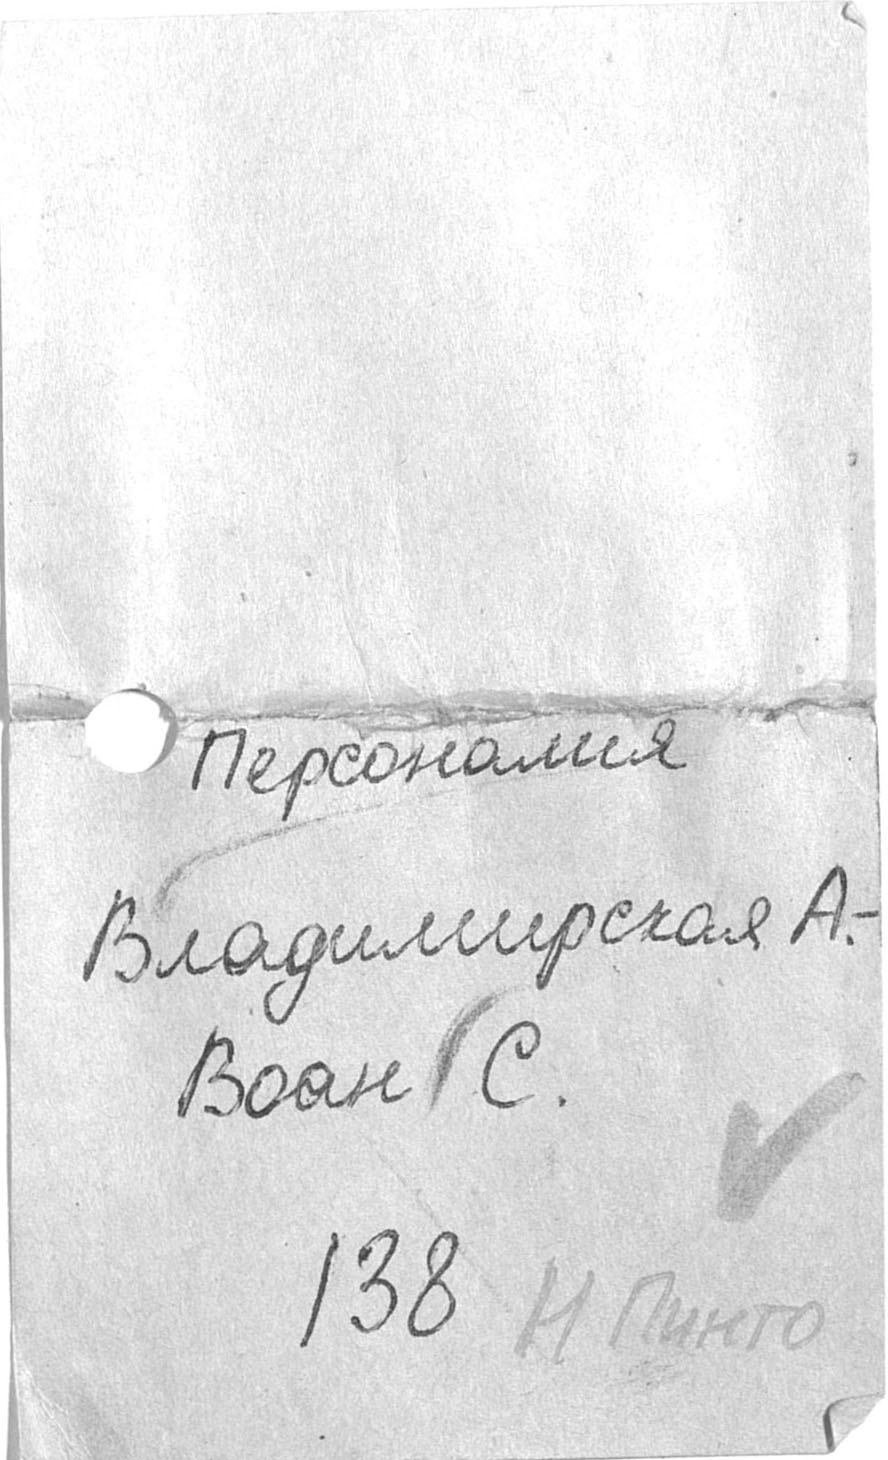 Персоналия
Владимирская А.-
Воан С.
138
Н Пинто